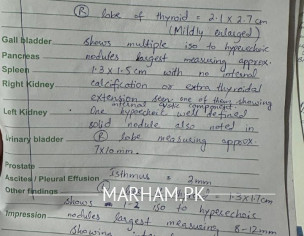 (R) lobe of thyroid = 2.1 x 2.7 cm
(Mildly enlarged)
Gall bladder shows multiple iso to hyperechoic
Pancreas nodules largest measuring approx.
Spleen 1.3 x 1.5 cm with no internal
Right Kidney calcification or extra thyroidal
extension seen one of them showing
internal cystic component.
Left Kidney One hypoechoic well defined
solid nodule also noted in
Urinary bladder (R) lobe measuring approx.
7x10 mm.
Prostate
Ascites / Pleural Effusion Isthmus = 2mm
Other findings = 1.3x1.7cm
MARHAM.PK
shows 1-2 iso to hyperechoic
Impression nodules largest measuring 8-12mm
showing